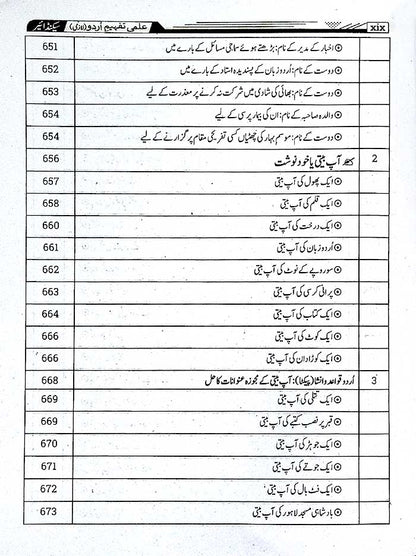 xix علمی تفہیمِ اُردو (لازمی) سیکنڈ ائیر
⊙ اخبار کے مدیر کے نام: بڑھتے ہوئے سماجی مسائل کے بارے میں 651
⊙ دوست کے نام: اُردو زبان کے پسندیدہ استاد کے بارے میں 652
⊙ دوست کے نام: بھائی کی شادی میں شرکت نہ کرنے پر معذرت کے لیے 653
⊙ والدہ صاحبہ کے نام: ان کی بیمار پرسی کے لیے 654
⊙ دوست کے نام: موسم بہار کی چھٹیاں کسی تفریحی مقام پر گزارنے کے لیے 654
2 آپ بیتی یا خود نوشت 656
⊙ ایک پھول کی آپ بیتی 657
⊙ ایک قلم کی آپ بیتی 658
⊙ ایک درخت کی آپ بیتی 660
⊙ اُردو زبان کی آپ بیتی 661
⊙ سو روپے کے نوٹ کی آپ بیتی 662
⊙ پرانی کرسی کی آپ بیتی 663
⊙ ایک کتاب کی آپ بیتی 664
⊙ ایک کوٹ کی آپ بیتی 666
⊙ ایک کوڑا دان کی آپ بیتی 666
3 اُردو قواعد و انشا (پیکٹا): آپ بیتی کے مجوزہ عنوانات کا حل 668
⊙ ایک تتلی کی آپ بیتی 669
⊙ قبر پر نصب کتبے کی آپ بیتی 669
⊙ ایک جوہڑ کی آپ بیتی 670
⊙ ایک جوتے کی آپ بیتی 671
⊙ ایک فٹ بال کی آپ بیتی 672
⊙ بادشاہی مسجد لاہور کی آپ بیتی 673